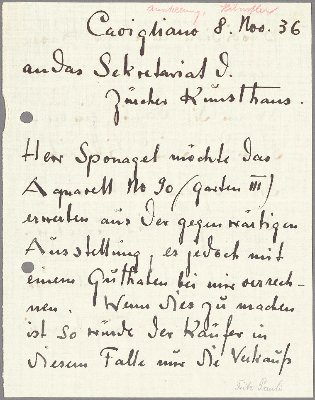 Künstler
Cavigliano 8. Nov. 36
an das Sekretariat d.
Zürcher Kunsthaus.
Herr Sponagel möchte das
Aquarell No 90 (Garten III)
erwerben aus der gegenwärtigen
Ausstellung, es jedoch mit
einem Guthaben bei mir verrech-
nen. Wenn dies zu machen
ist so würde der Käufer in
diesem Falle nur die Verkaufs
Fritz Pauli